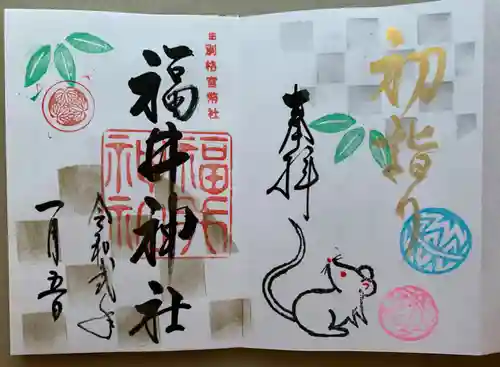 初詣り
奉拝
旧別格官幣社
福井神社
福井神社
令和弐年
一月五日